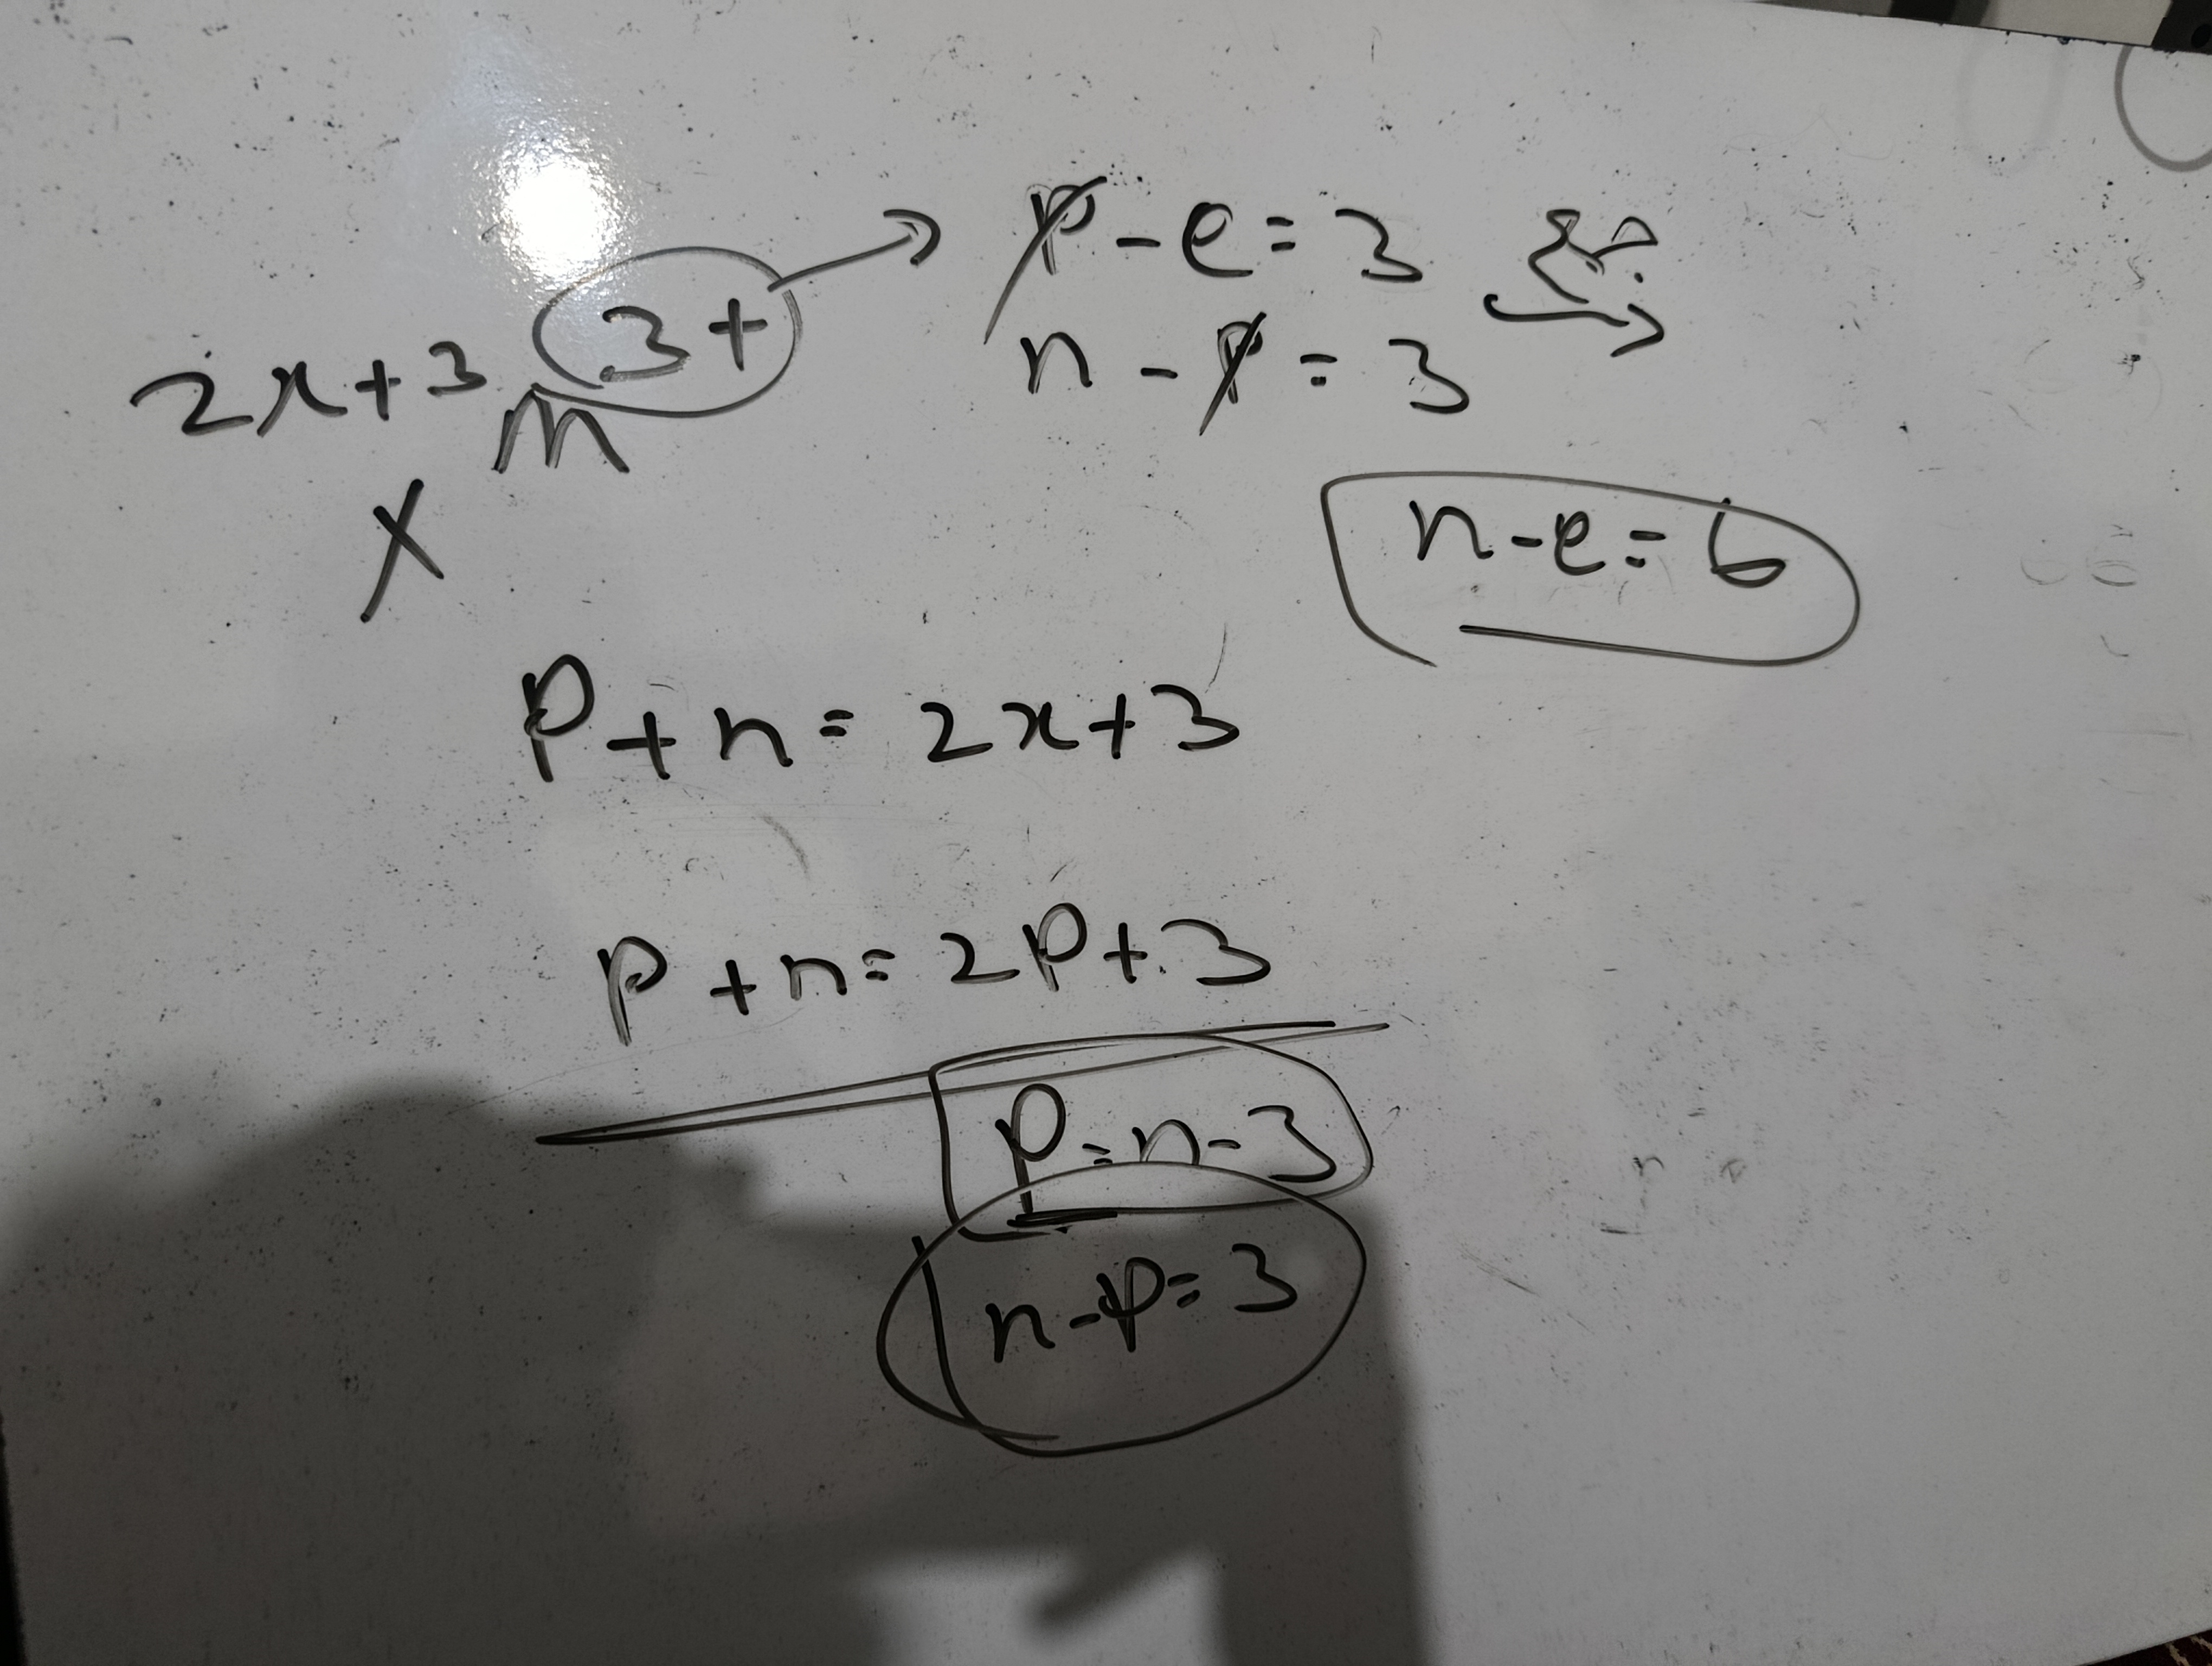 p - e = 3
2x+3 M 3+
n - p = 3
X
n - e = 6
P + n = 2x+3
p + n = 2P+3
P = n - 3
n - p = 3